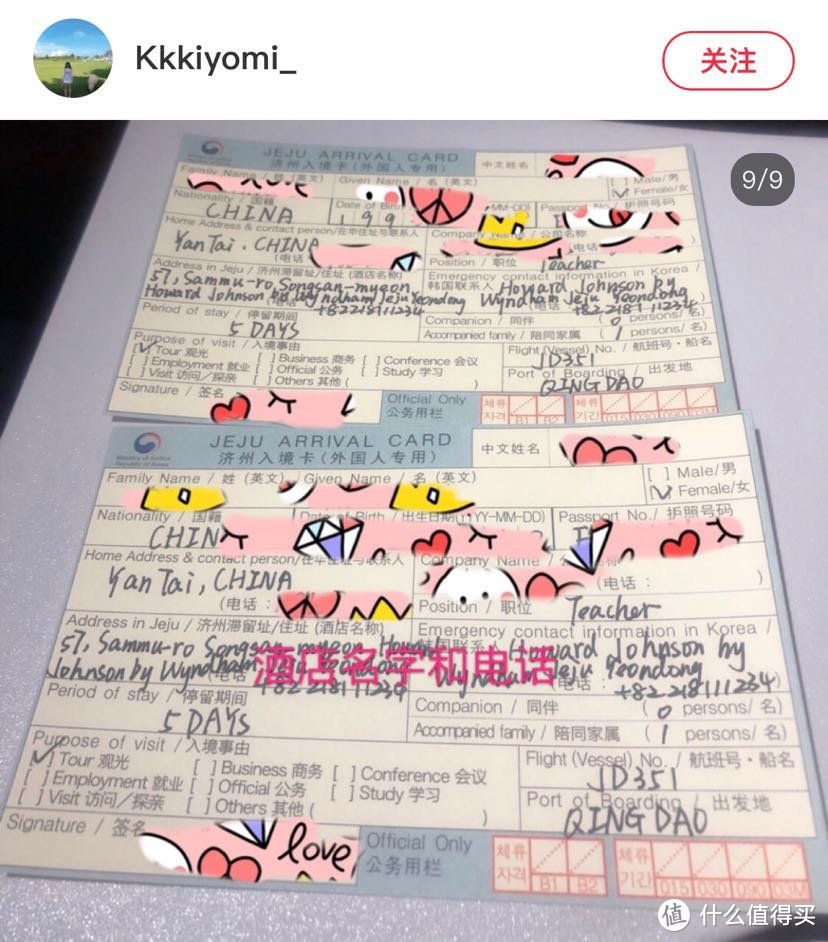 Kkkiyomi_
关注
9/9
JEJU ARRIVAL CARD
济州入境卡(外国人专用)
中文姓名
Family Name / 姓 (英文)
Given Name / 名 (英文)
[ ] Male/男
[✓] Female/女
Nationality / 国籍
CHINA
Date of Birth
199
MM-DD)
Passport No./ 护照号码
Home Address & contact person/在华住址与联系人
YanTai. CHINA
(电话
Company Name / 公司名称
电话
Position / 职位
Teacher
Address in Jeju / 济州滞留址/住址 (酒店名称)
57, Sammu-ro, Songsan-myeon
Howard Johnson by Wyndham Jeju Yeondong
+82218111234
Emergency contact information in Korea /
韩国联系人 Howard Johnson by
Wyndham Jeju Yeondong
+82 2181 11234)
Period of stay / 停留期间
5 DAYS
Companion / 同伴
( 0 persons/ 名)
Accompanied family / 陪同家属
( 1 persons/ 名)
Purpose of visit /入境事由
[✓] Tour 观光
[ ] Business 商务
[ ] Conference 会议
[ ] Employment 就业
[ ] Official 公务
[ ] Study 学习
[ ] Visit 访问/探亲
[ ] Others 其他 ( )
Flight (Vessel) No. / 航班号·船名
JD351
Port of Boarding / 出发地
QINGDAO
Signature / 签名
Official Only
公务用栏
체류
자격
B1 B2
체류
기간
015 030 090 03M
Ministry of Justice
Republic of Korea
JEJU ARRIVAL CARD
济州入境卡(外国人专用)
中文姓名
Family Name / 姓 (英文)
Given Name / 名 (英文)
[ ] Male/男
[✓] Female/女
Nationality / 国籍
CHIN
Date of Birth / 出生日期(YYYY-MM-DD)
Passport No./ 护照号码
Home Address & contact person/在华住址与联系人
YanTai, CHINA
(电话 :
Company Name /
(电话 : )
Position / 职位
Teacher
Address in Jeju / 济州滞留址/住址 (酒店名称)
57, Sammu-ro Songsan-myeon Howard
Johnson by Wyndham Jeju Yeondong
+82 218111234
酒店名字和电话
Emergency contact information in Korea /
Howard Johnson by
Wyndham Jeju Yeondong
+82 218111234)
Period of stay / 停留期间
5 DAYS
Companion / 同伴
( 0 persons/ 名)
Accompanied family / 陪同家属
( 1 persons/ 名)
Purpose of visit /入境事由
[✓] Tour 观光
[ ] Business 商务
[ ] Conference 会议
[ ] Employment 就业
[ ] Official 公务
[ ] Study 学习
[ ] Visit 访问/探亲
[ ] Others 其他 ( )
Flight (Vessel) No. / 航班号·船名
JD351
Port of Boarding / 出发地
QINGDAO
Signature / 签名
love
Official Only
公务用栏
체류
자격
B1 B2
체류
기간
015 030 090 03M
值 什么值得买